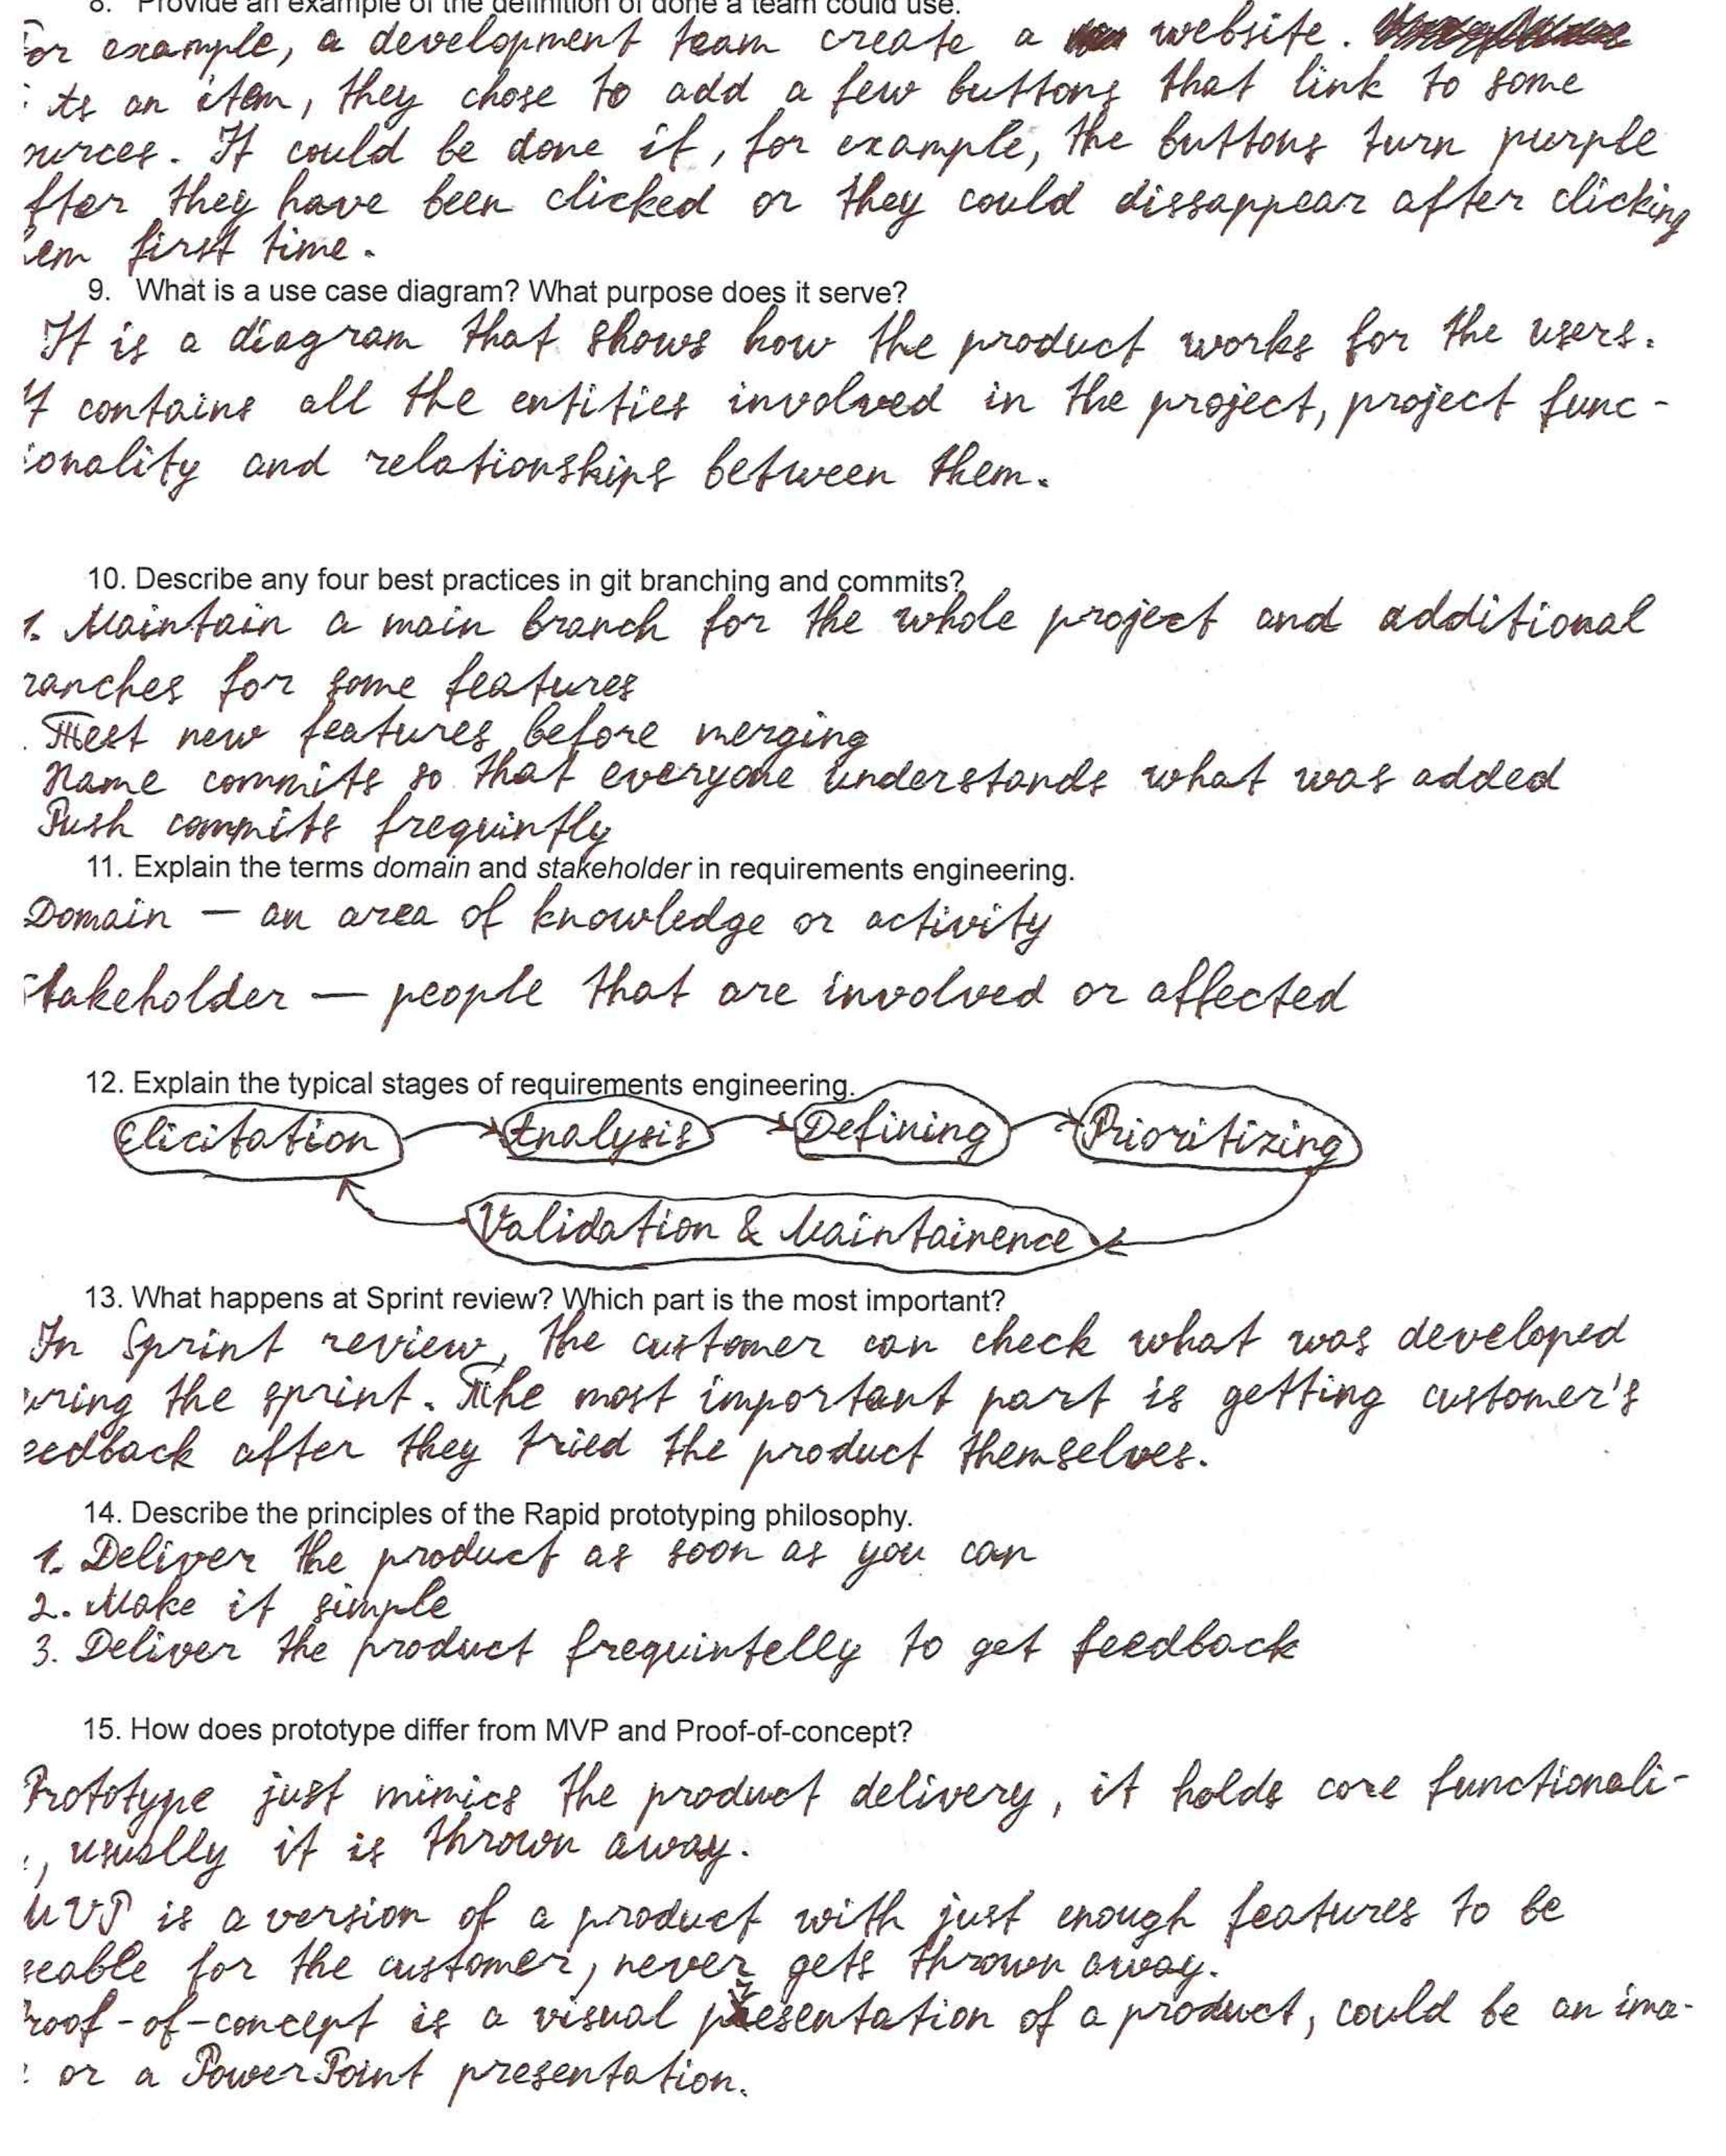 8. Provide an example of the definition of done a team could use.
For example, a development team create a website.
its an item, they chose to add a few buttons that link to some
ources. It could be done if, for example, the buttons turn purple
fter they have been clicked or they could dissappear after clicking
hem first time.
9. What is a use case diagram? What purpose does it serve?
It is a diagram that shows how the product works for the users.
It contains all the entities involved in the project, project func-
ionality and relationships between them.
10. Describe any four best practices in git branching and commits?
1. Maintain a main branch for the whole project and additional
ranches for some features
. Test new features before merging
Name commits so that everyone understands what was added
Push commits frequintly
11. Explain the terms domain and stakeholder in requirements engineering.
Domain — an area of knowledge or activity
Stakeholder — people that are involved or affected
12. Explain the typical stages of requirements engineering.
Elicitation Analysis Defining Prioritizing
Validation & Maintainence
13. What happens at Sprint review? Which part is the most important?
In Sprint review, the customer can check what was developed
uring the sprint. The most important part is getting customer's
eedback after they tried the product themselves.
14. Describe the principles of the Rapid prototyping philosophy.
1. Deliver the product as soon as you can
2. Make it simple
3. Deliver the product frequintelly to get feedback
15. How does prototype differ from MVP and Proof-of-concept?
Prototype just mimics the product delivery, it holds core functionali-
, usually it is thrown away.
MVP is a version of a product with just enough features to be
seable for the customer, never gets thrown away.
Proof-of-concept is a visual presentation of a product, could be an ima-
or a PowerPoint presentation.